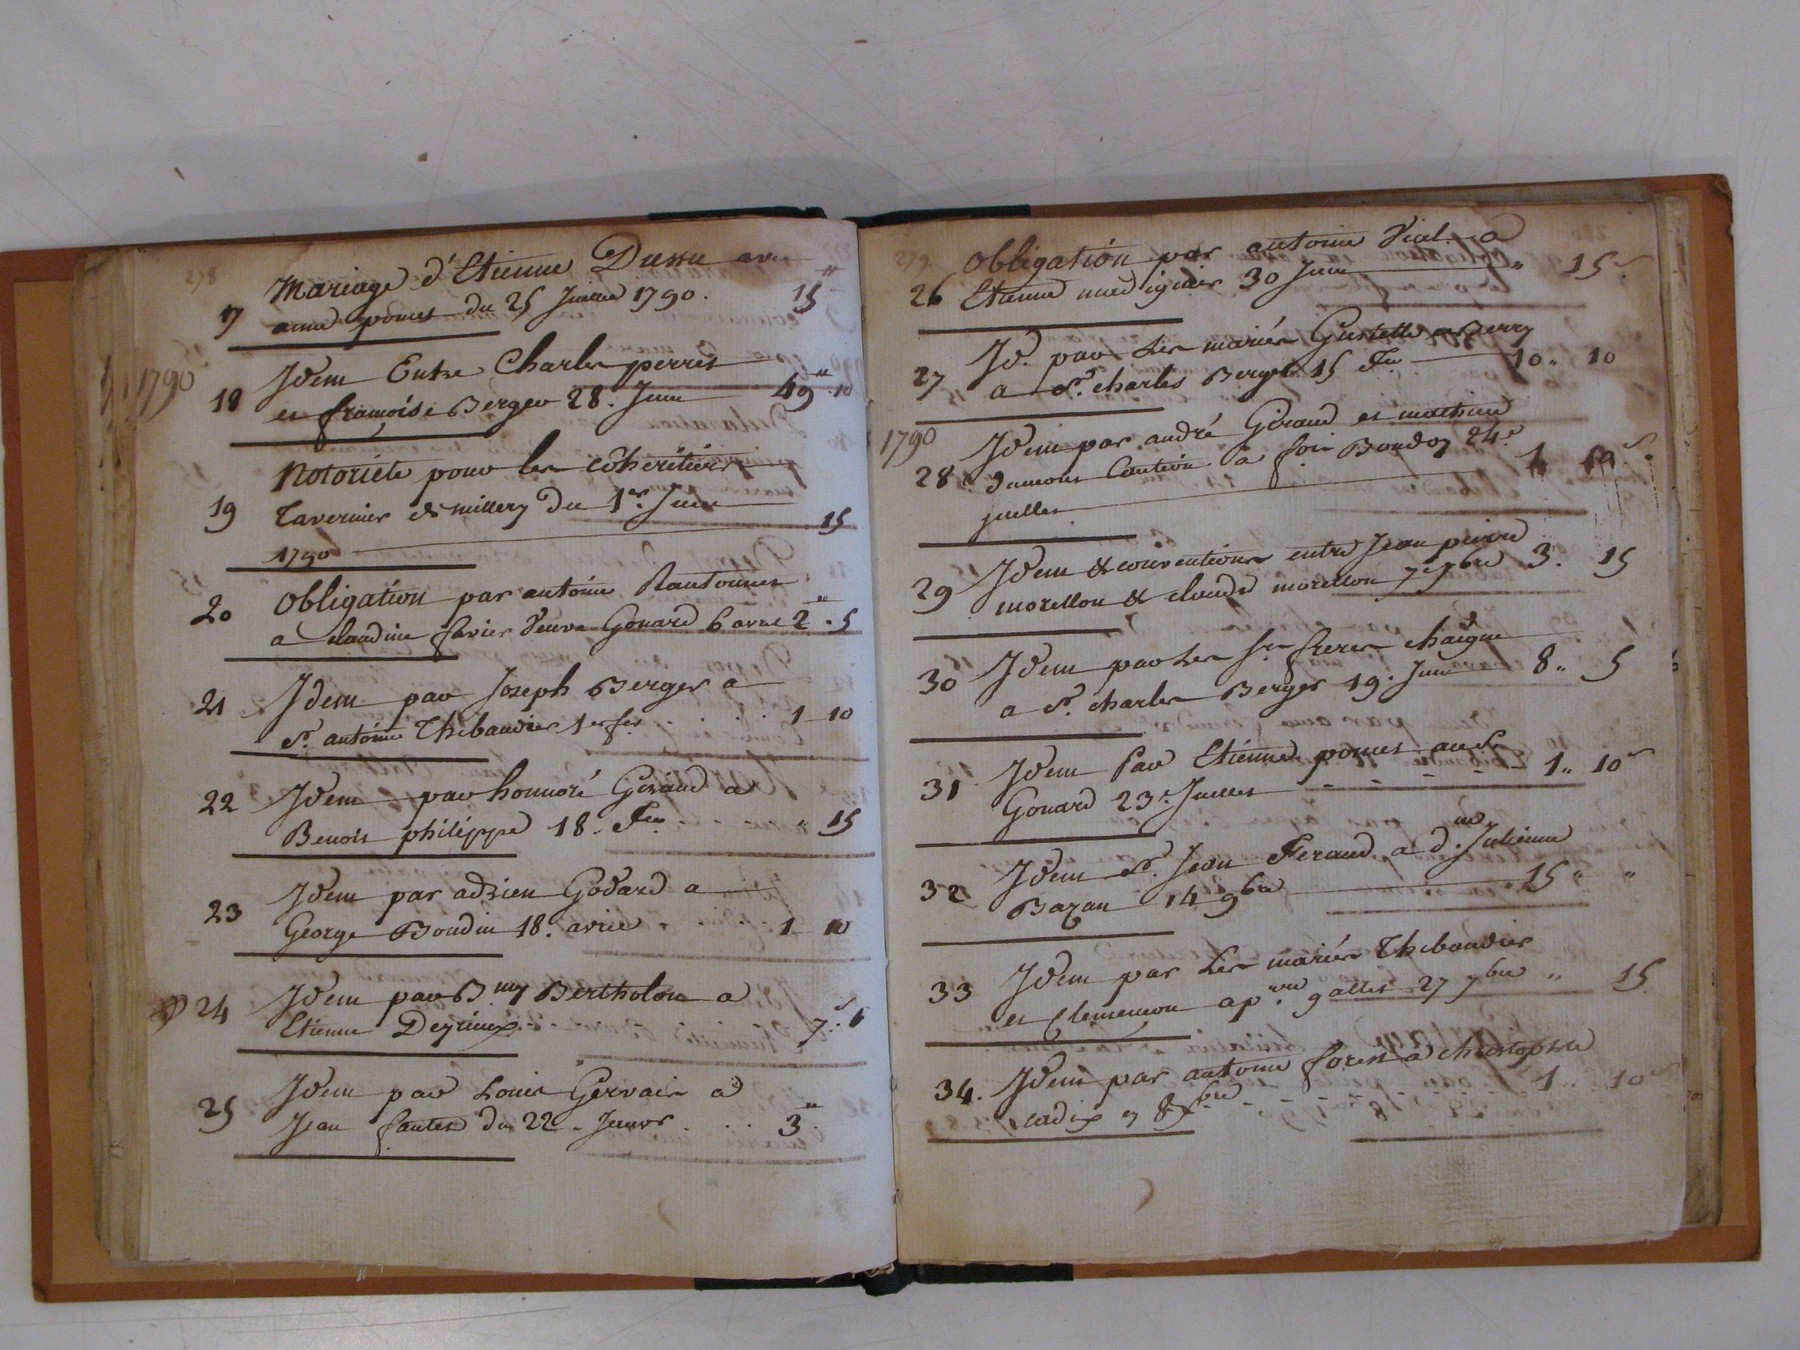 278
Mariage d'Etienne Dussu avec
17 anne poncet du 25 Juillet 1790. 15 "
1790
Idem Entre Charles perret
18 et françoise Berger 28. Juin 49 " 10
Notoriété pour les cohéritiers
19 Tavernier de millery du 1er Juin
1790 15
Obligation par antoine
20 a claudine favier Veuve Gonard 6 avril 2 " 5
21 Idem par Joseph Berger a
Sr. antoine Thibaudier 1er fer 1 10
22 Idem par honnoré Giraud a
Benoit philippe 18. Fer " 15
Idem par adrien Godard a
23 George Boudin 18. avril 1 10
24 Idem par Bmy Bertholon a
Etienne Deyrieux 7
Idem par Louis Gervais a
25 Jean du 22 Janvr 3 "
279
Obligation par antoine Vial a
26 Etienne 30 Juin " 15 s
Id. par Les mariés et Berry
27 a Sr. Charles Berger 15 Fer 10 " 10
1790
Idem par andré Giraud et
28 dumont Caution a 24e 1
juillet
Idem & conventions entre Jean pierre
29 morellon & claude morellon 7e 7bre 3. 15
30 Idem par Les Srs freres
a Sr. charles Berger 19. Juin 8 " 5
31 Idem Par Etienne poncet au Sr
Gonard 23e Juillet 1 " 10 s
32 Idem Sr. Jean Feraud a d. Julienne
Bazan 14 9bre 15 " "
33 Idem par Les mariés Thibaudier
et Clemencon a pre gallet 27 7bre " 15
34. Idem par antoine forest a christophle
cadix 7 8bre 1 " 10 s